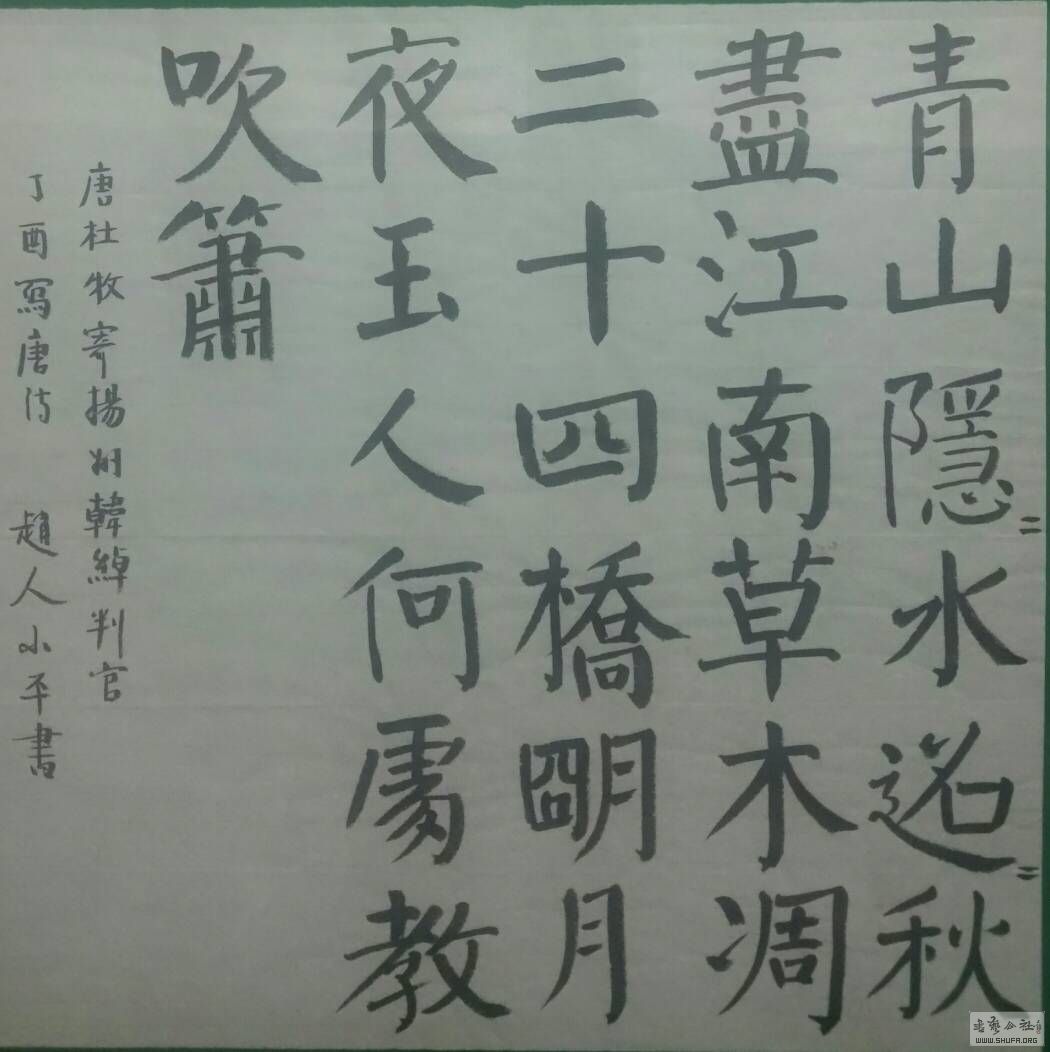 青山隱〻水迢〻秋
盡江南草木凋
二十四橋朙月
夜玉人何處教
吹簫
唐杜牧寄揚州韓綽判官
丁酉寫唐詩 趙人小平書
WWW.SHUFA.ORG